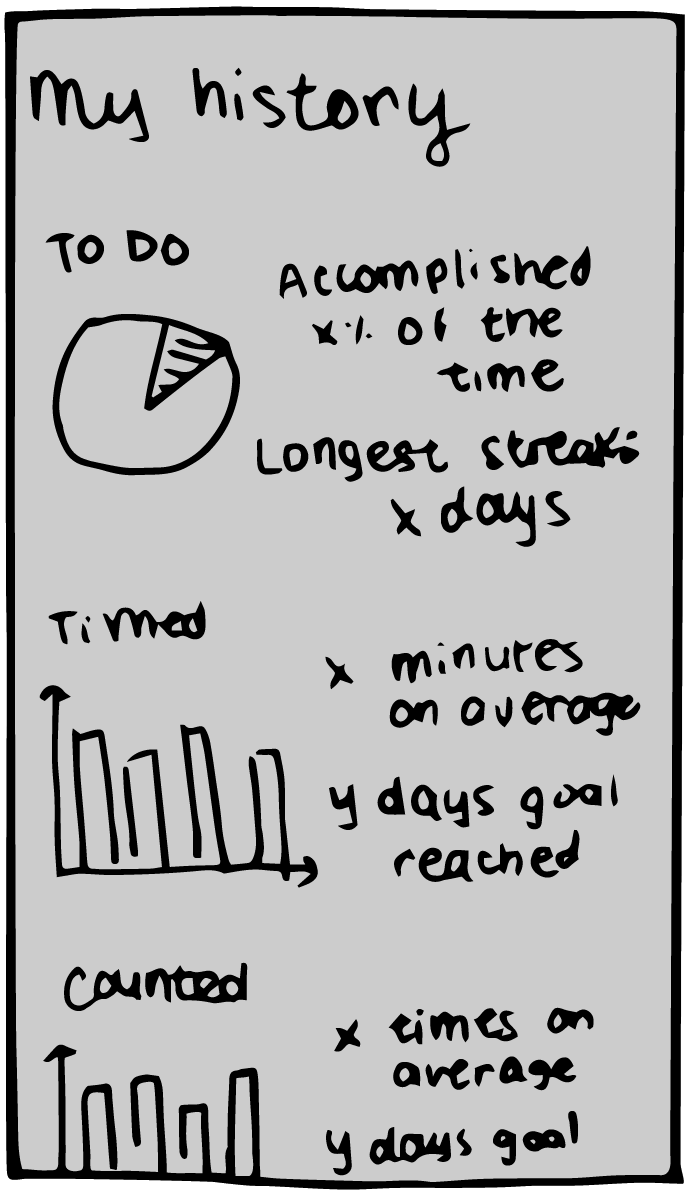 My history
TO DO
Accomplished
x% of the
time
Longest streak:
x days
Timed
x minutes
on average
y days goal
reached
Counted
x times on
average
y days goal